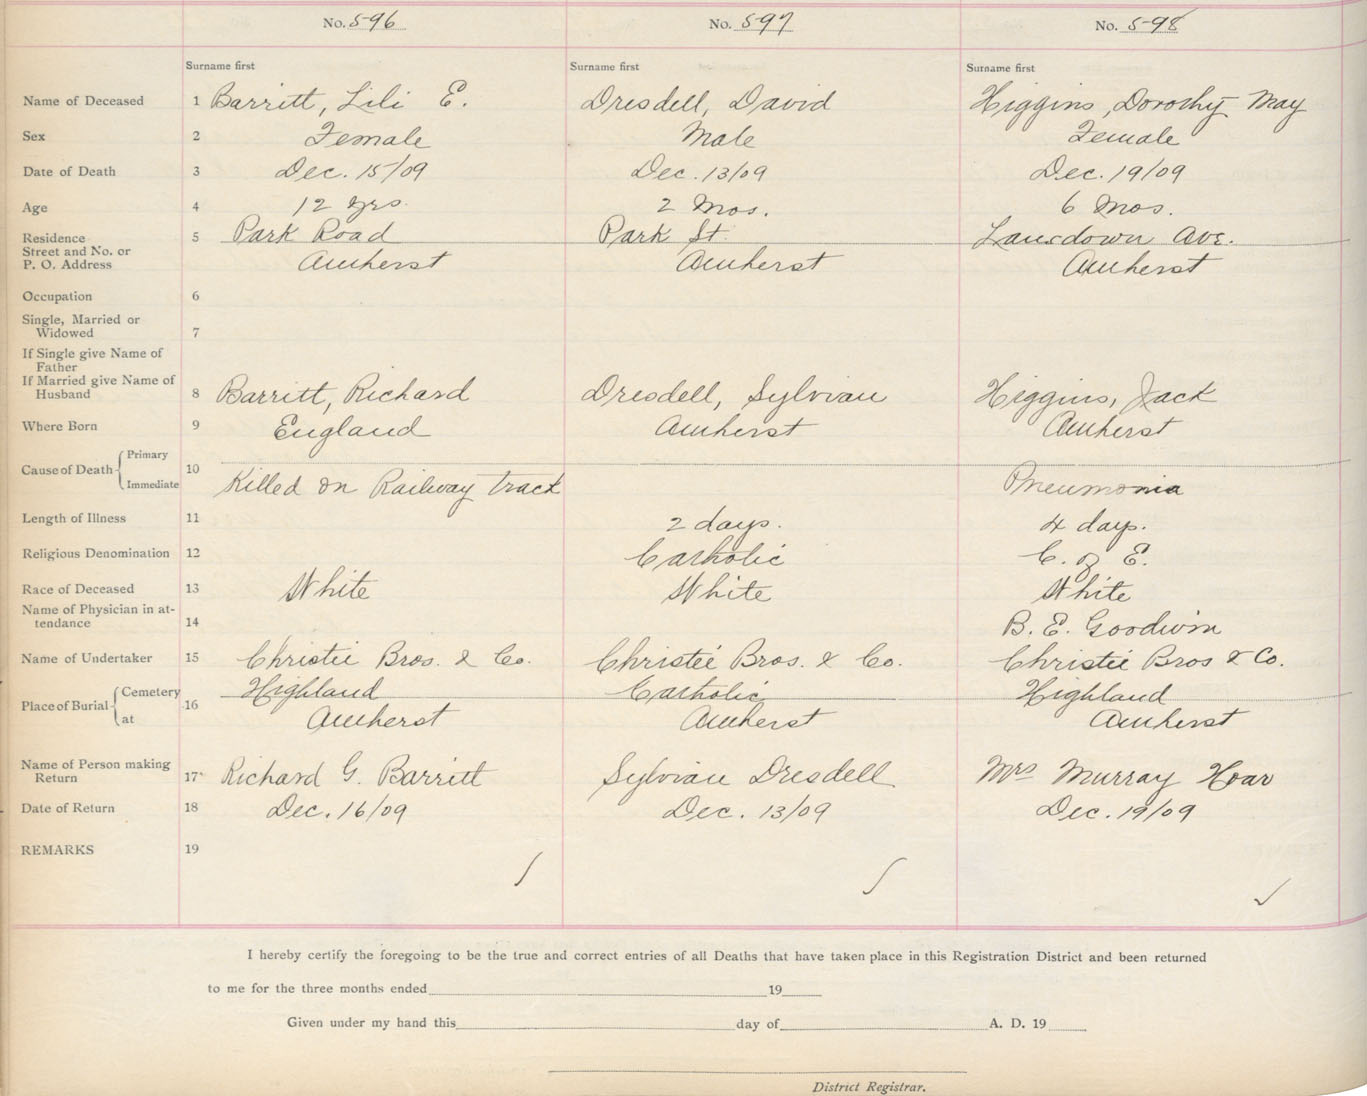 No. 596 No. 597 No. 598
Surname first Surname first Surname first
Name of Deceased 1 Barritt, Lili E. Dresdell, David Higgins, Dorothy May
Sex 2 Female Male Female
Date of Death 3 Dec. 15/09 Dec. 13/09 Dec. 19/09
Age 4 12 yrs. 2 Mos. 6 Mos.
Residence 5 Park Road Park St. Lansdown Ave.
Street and No. or
P. O. Address Amherst Amherst Amherst
Occupation 6
Single, Married or
Widowed 7
If Single give Name of
Father
If Married give Name of
Husband 8 Barritt, Richard Dresdell, Sylvian Higgins, Jack
Where Born 9 England Amherst Amherst
Cause of Death Primary
10
Immediate Killed on Railway track Pneumonia
Length of Illness 11 2 days. 4 days.
Religious Denomination 12 Catholic C. of E.
Race of Deceased 13 White White White
Name of Physician in at-
tendance 14 B. E. Goodwin
Name of Undertaker 15 Christie Bros. & Co. Christie Bros. & Co. Christie Bros & Co.
Place of Burial Cemetery 16 Highland Catholic Highland
at Amherst Amherst Amherst
Name of Person making
Return 17 Richard G. Barritt Sylvian Dresdell Mrs Murray Hoar
Date of Return 18 Dec. 16/09 Dec. 13/09 Dec. 19/09
REMARKS 19
I hereby certify the foregoing to be the true and correct entries of all Deaths that have taken place in this Registration District and been returned
to me for the three months ended 19
Given under my hand this day of A. D. 19
District Registrar.